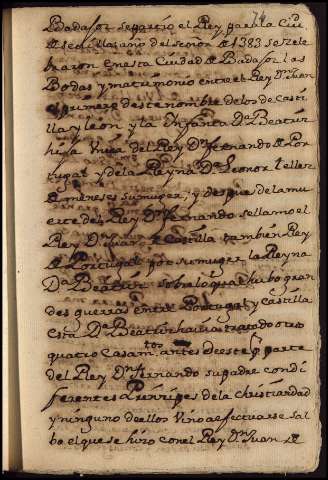 74
Badajoz se partio el Rey para la Ciu
de Sevilla año del señor de 1383 se zele
braron en esta Ciudad de Badajoz las
Bodas y matrimonio entre el Rey Dn Juan
el primero deste nombre de los de Casti
lla y leon, y la Infanta Da Beatriz
hija Unica del Rey Dn Fernando de Por
tugal y de la Reyna Da Leonor tellez
de meneses su muger, y despues de la mu
erte del Rey Dn Fernando se llamo el
Rey Dn Juan de Castilla tambien Rey
de Portugal por su muger la Reyna
Da Beatriz sobre lo qual hubo gran
des guerras entre Portugal y Castilla
esta Da Beatriz havia tratado otros
quatro Casamtos antes de este pr parte
del Rey Dn Fernando su padre con di
ferentes Prinzipes de la christiandad
y ninguno de ellos vino a efectuarse sal
bo el que se hizo con el Rey Dn Juan de